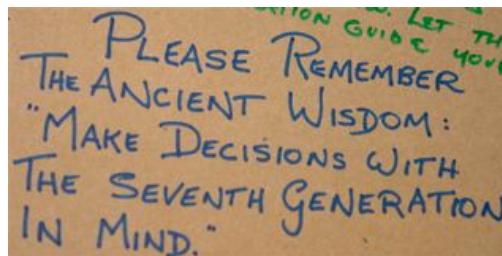 LET TH
TION GUIDE YOU
PLEASE REMEMBER
THE ANCIENT WISDOM:
"MAKE DECISIONS WITH
THE SEVENTH GENERATION
IN MIND."